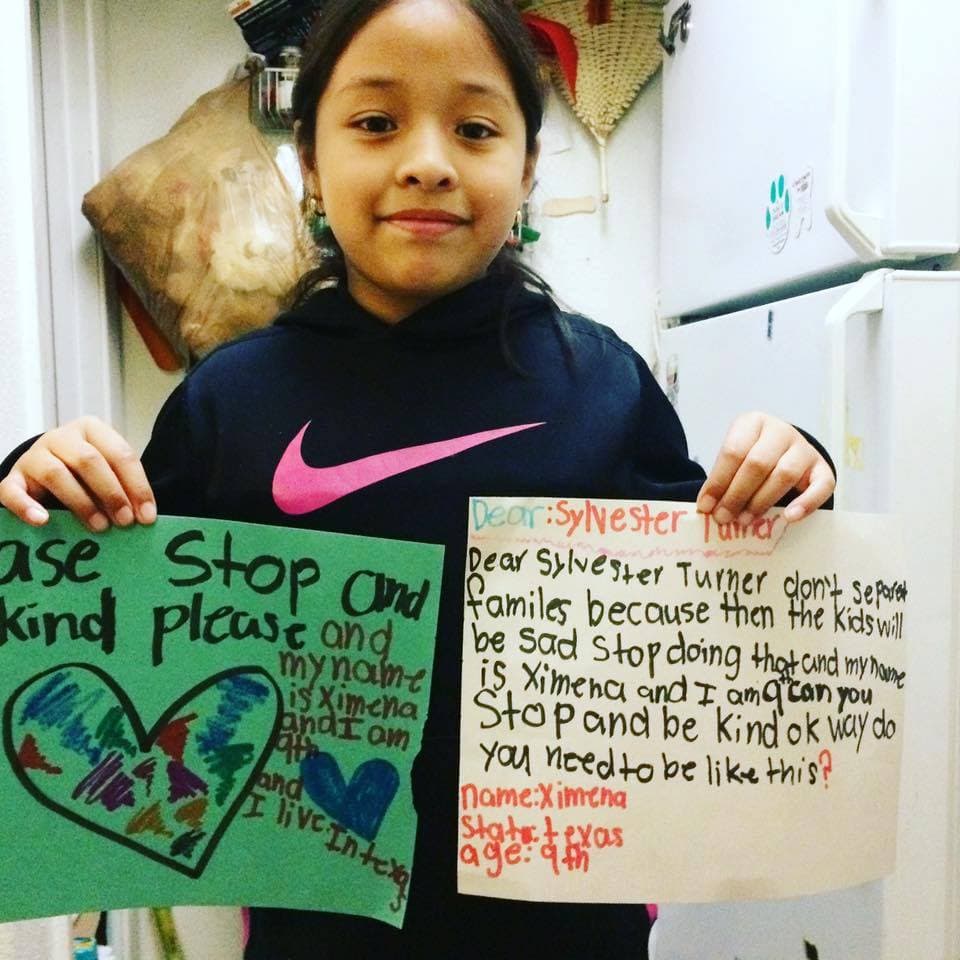 ase Stop and
kind please
and
my name
is Ximena
and I am
9th
and
I live In texas
Dear:Sylvester Turner
Dear Sylvester Turner don't separet
familes because then the kids will
be sad Stop doing that and my name
is Ximena and I am 9 can you
Stop and be kind ok way do
you need to be like this?
name:Ximena
State:texas
age: 9th